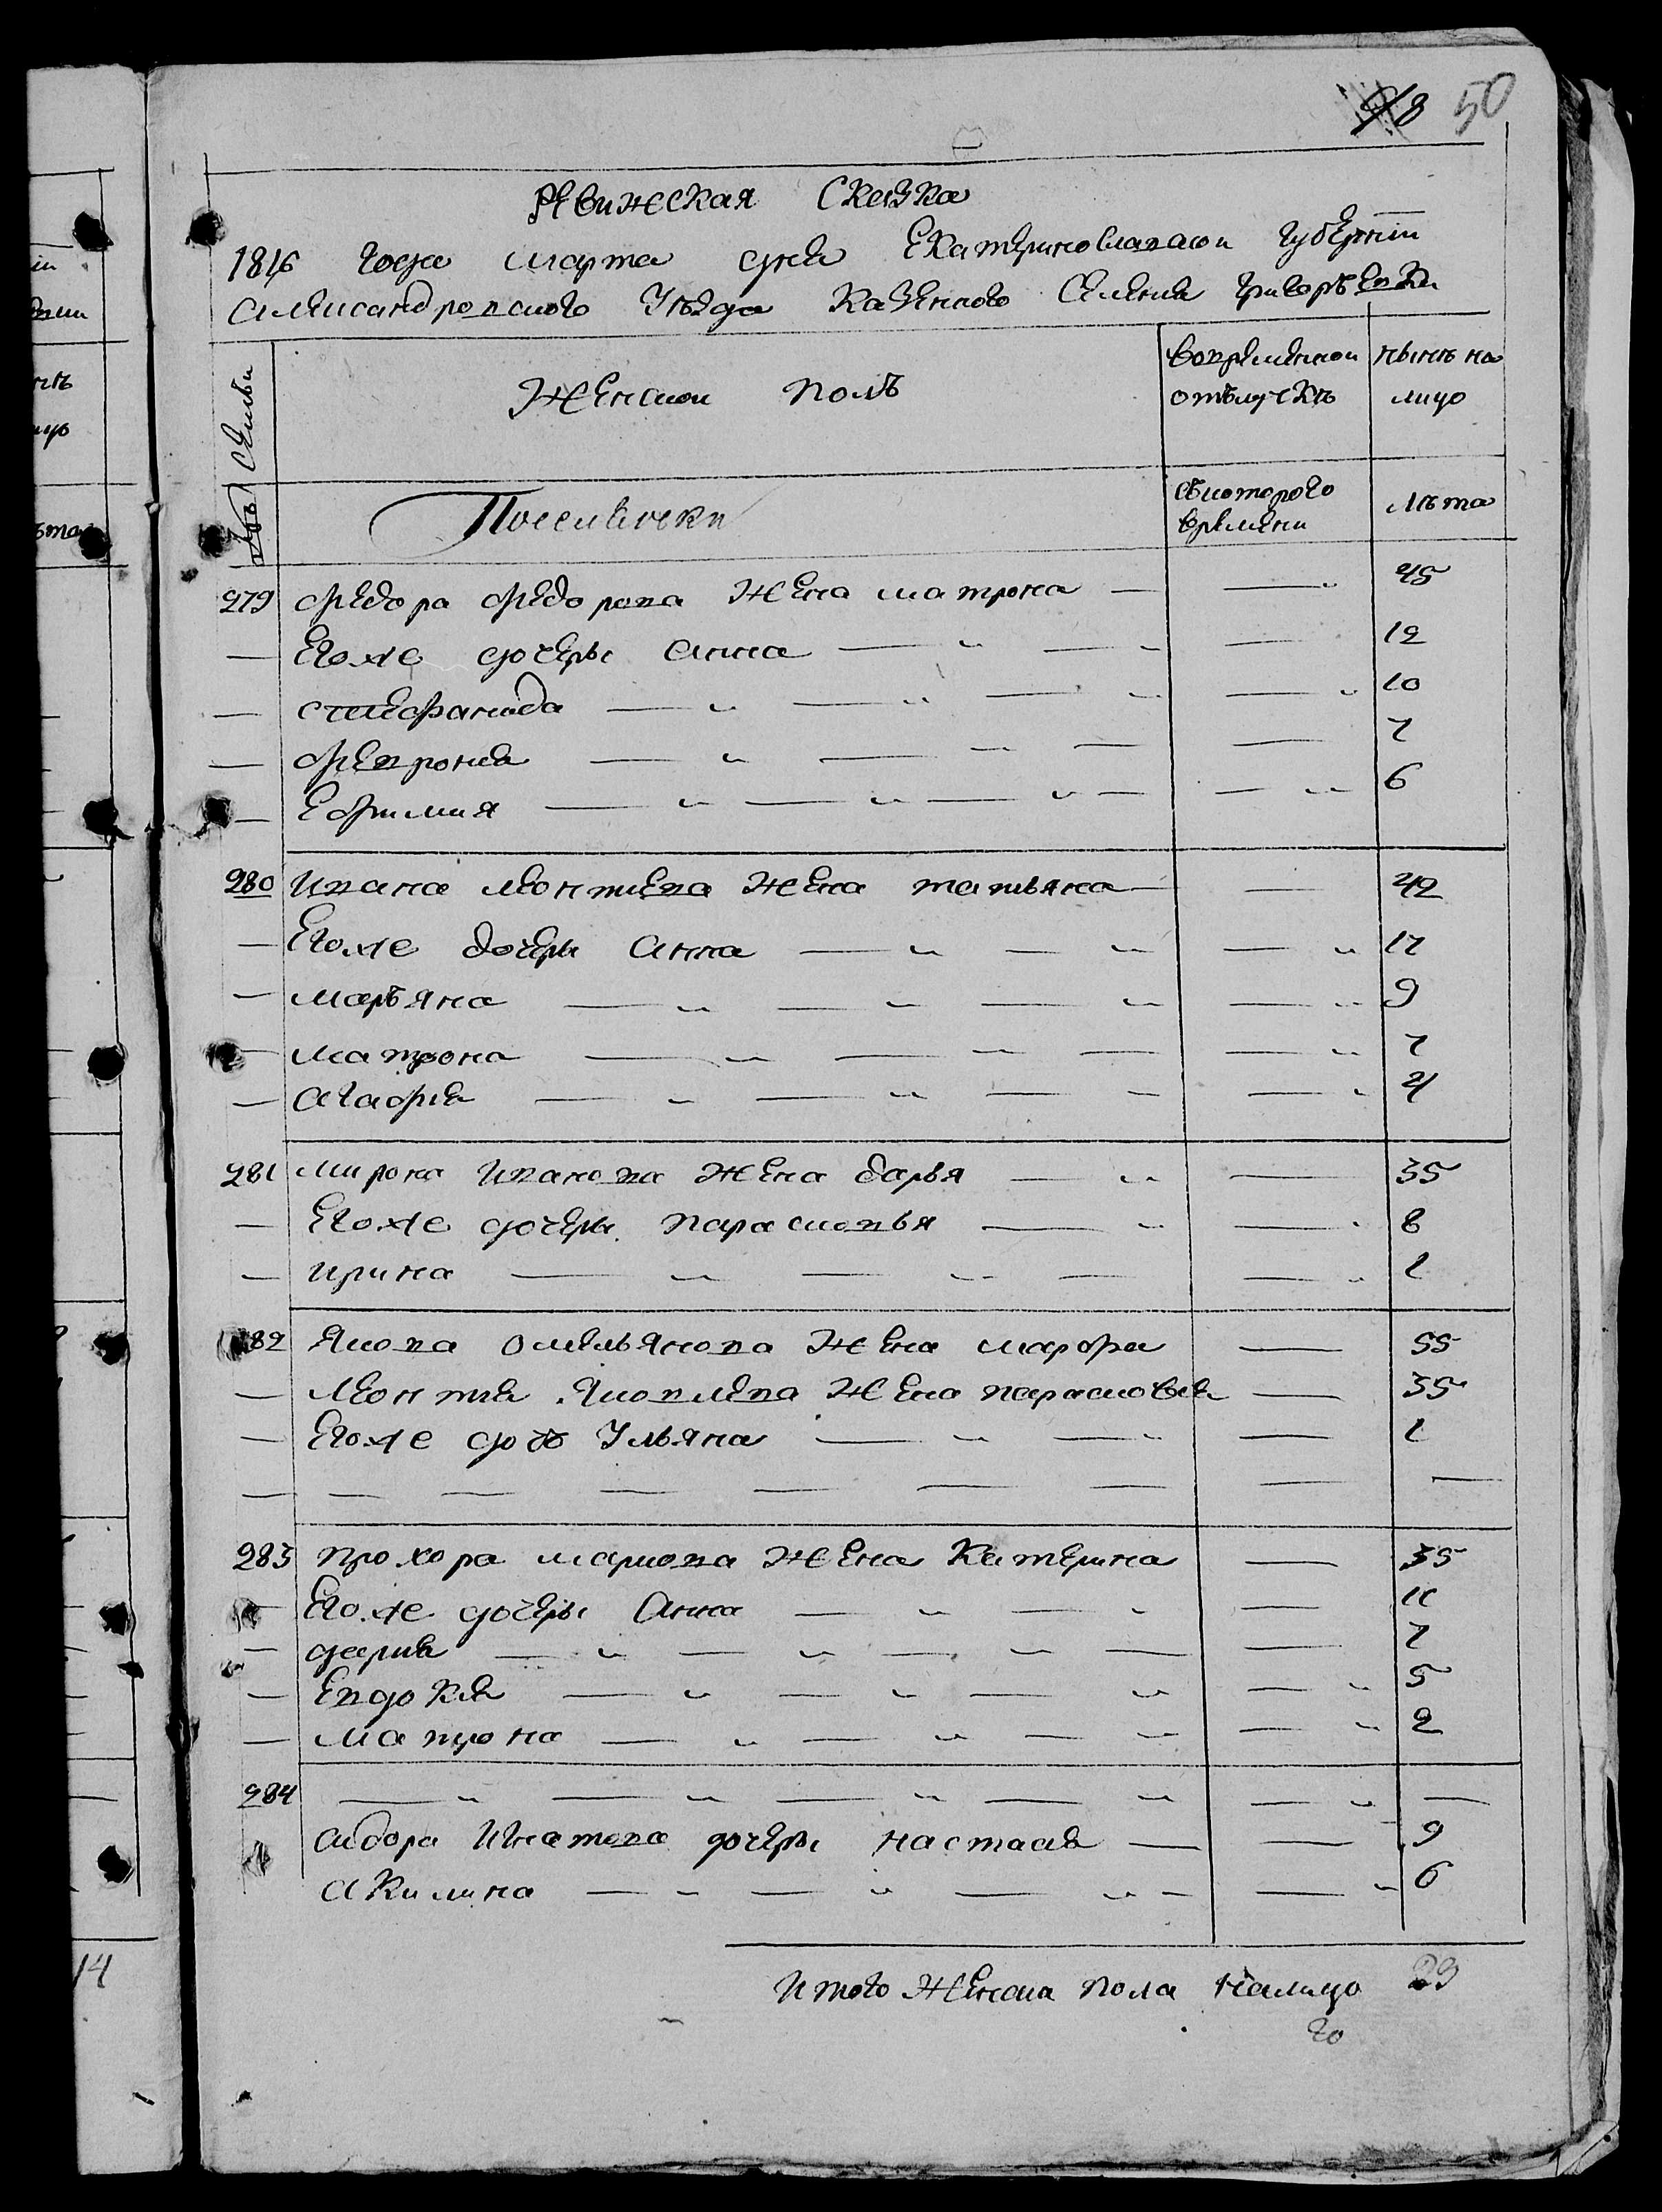 50
Ревижская Сказка
1816 года марта дня Екатеринославской губернии
Александровского Уѣзда Казенного Селения Григорьевки
Семьи
Женской полъ
вовременной отълучкѣ
нынѣ на лицо
№
Поселянски
съкоторого времени
Лѣта
279 Федора Федорова Жена матрона — — 45
— Егоже дочеры Анна — — 12
— стефанида — — 10
— Февронея — — 7
— Ефимия — — 6
280 Ивана леонтиева Жена татьяна — — 42
— Егоже дочеры Анна — — 17
— маръяна — — 9
— матрона — — 7
— Агафия — — 4
281 мирона Иванова Жена дарья — — 35
— Егоже дочеры парасковья — — 8
— ирина — — 1
282 Якова Омельянова Жена марфа — 55
— Леонтия Яковлева Жена парасковея — 35
— Егоже дочь Ульяна — — 1
— — — — — — — — —
283 прохора маркова Жена Катерина — 35
— Егоже дочеры Анна — — 11
— дария — — 7
— Евдокия — — 5
— матрона — — 2
284 — — — — — —
сидора Игнатова дочеры настасия — — 9
Акилина — — 6
Итого Женска пола налицо 23
14